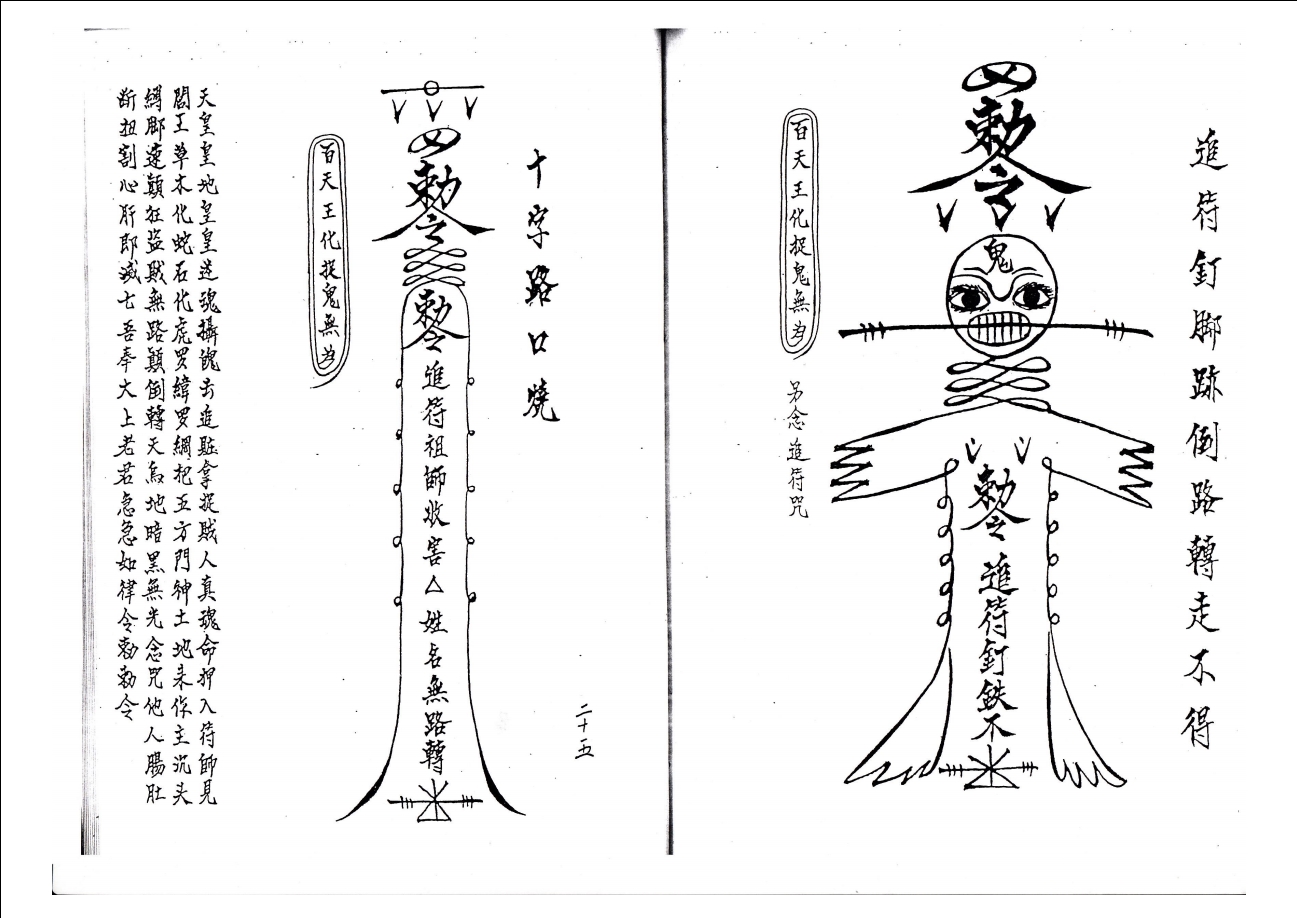 追符釘脚跡倒路轉走不得
勅令
鬼
勅令
追符釘鉄不
百天王化捉鬼無為
另念追符咒
十字路口燒
二十五
勅令
勅令
追符祖師收害△姓名無路轉
百天王化捉鬼無為
天皇皇地皇皇送魂攝魄去追賍拿捉賊人真魂命押入符師見
閻王草木化蛇石化虎罗緯罗網把五方門神土地来作主沉头
縛脚速顛狂盜賊無路顛倒轉天烏地暗黑無光念咒他人腸肚
断扭割心肝即滅亡吾奉太上老君急急如律令勅勅令